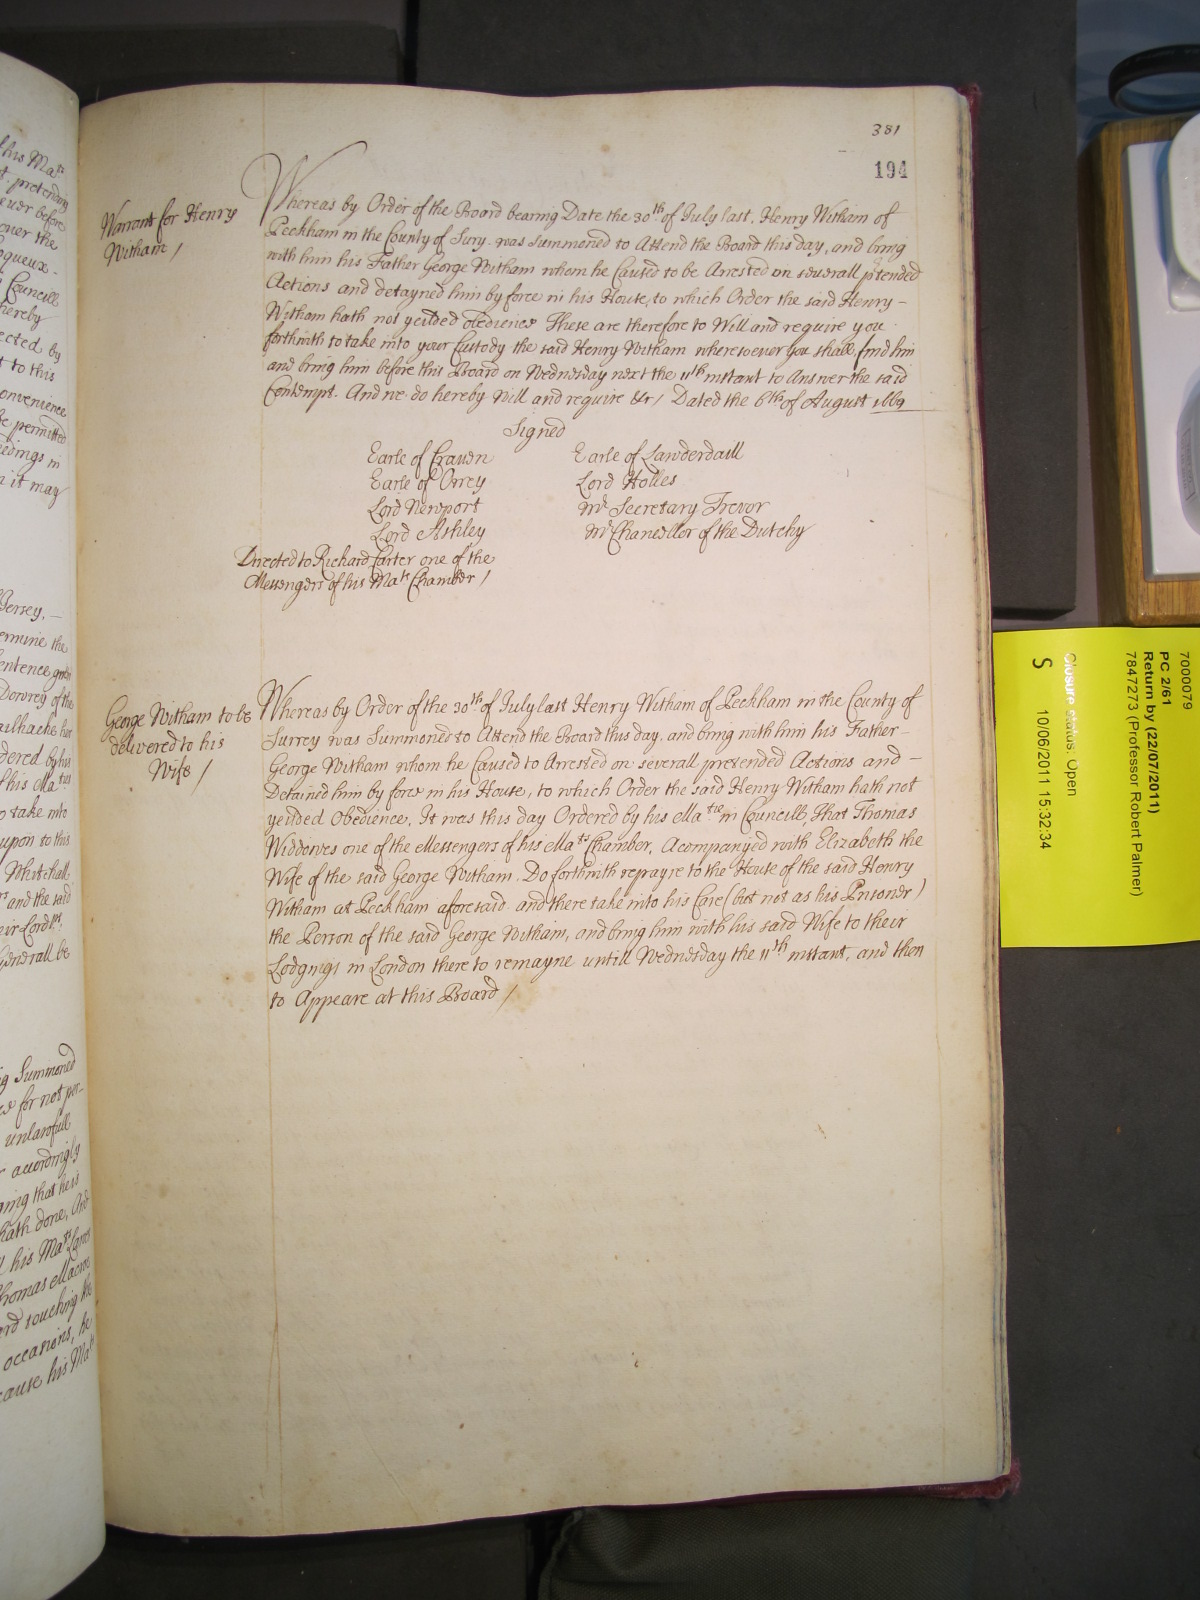 his Mats
t. pretending
euer before
ouer the
oqueux-
Councill
hereby
ected by
t to this
onvenience
be permitted
edings in
n it may
Jersey, -
ermine the
entence given
Dowrey of the
ailhache hat
dered by his
his Maties
o take into
upon to this
Whitehall.
rs and the said
eir Lordps.
Generall be
g Summoned
es for not per-
unlawfull
r accordingly
ming that he is
hath done, And
l his Mats Lawes
homas Macow
ard touching the
occasions, he
cause his Mats
381
194
Warrant for Henry
Witham /
Whereas by Order of the Board bearing Date the 30th of July last, Henry Witham of
Peckham in the County of Surry was Summoned to Attend the Board this day, and bring
with him his Father George Witham whom he Caused to be Arrested on severall ptended
Actions and detayned him by force in his House, to which Order the said Henry -
Witham hath not yeilded obedience These are therefore to Will and require you
forthwith to take into your Custody the said Henry Witham wheresoever you shall find him
and bring him before this Board on Wednesday next the 11th instant to Answer the said
Contempt. And we do hereby will and require &c / Dated the 6th of August 1669
Signed
Earle of Craven Earle of Lawderdaill
Earle of Orrey Lord Holles
Lord Newport Mr Secretary Trevor
Lord Ashley Mr Chancellor of the Dutchy
Directed to Richard Carter one of the
Messengers of his Mats Chamber /
George Witham to be
delivered to his
Wife /
Whereas by Order of the 30th of July last Henry Witham of Peckham in the County of
Surrey was Summoned to Attend the Board this day, and bring with him his Father -
George Witham whom he Caused to Arrested on severall pretended Actions and -
Detained him by force in his House, to which Order the said Henry Witham hath not
yeilded Obedience, It was this day Ordered by his Matie in Councill, That Thomas
Widdowes one of the Messengers of his Mats Chamber, Acompanyed with Elizabeth the
Wife of the said George Witham. Do forthwith repayre to the House of the said Henry
Witham at Peckham aforesaid and there take into his Care (but not as his Prisoner)
the Person of the said George Witham, and bring him with his said Wife to their
Lodgings in London there to remayne untill Wednesday the 11th instant, and then
to Appeare at this Board /
7000079
PC 2/61
Return by (22/07/2011)
7847273 (Professor Robert Palmer)
Closure status: Open
S 10/06/2011 15:32:34